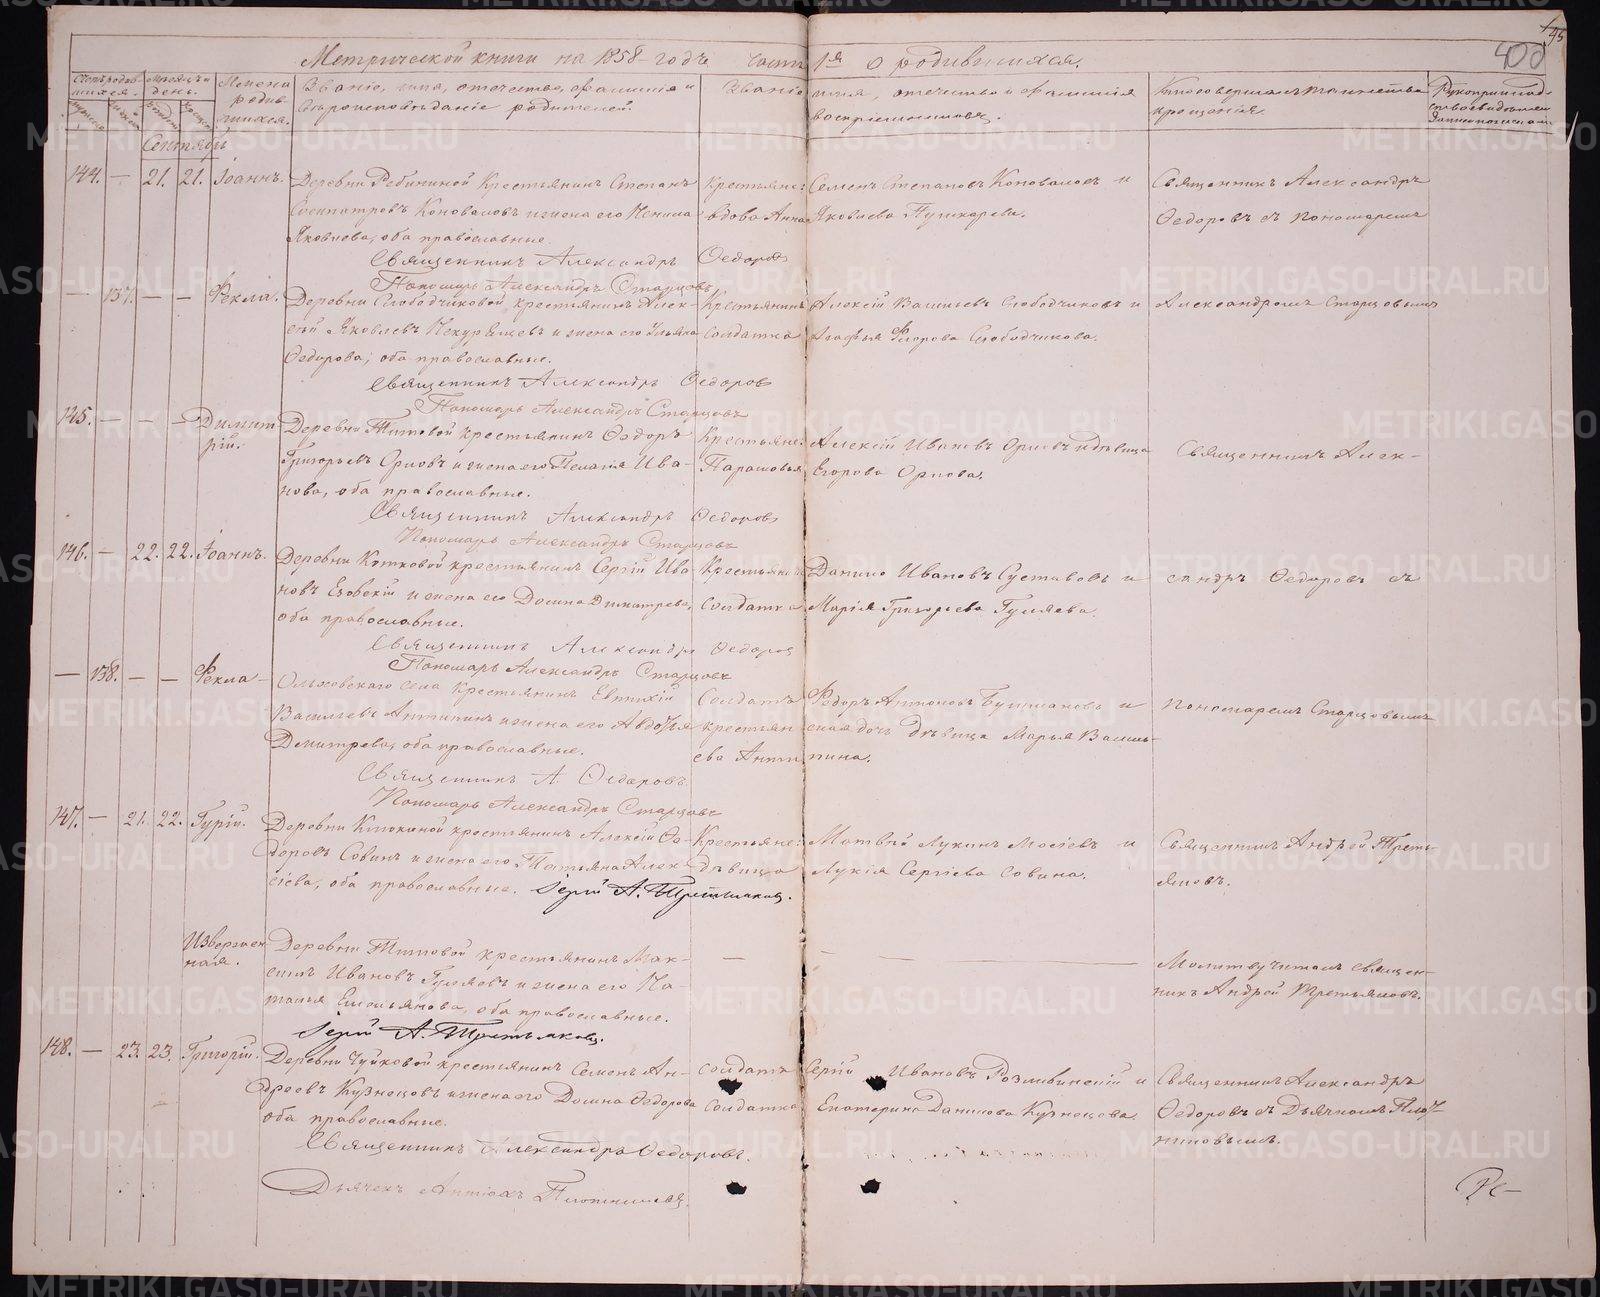 Метрической книги на 1858 годъ часть 1я о родившихся.
400
Счетъ родившихся.
Мѣсяцъ и день.
Имена родившихся.
Званіе, имя, отечество, фамилія и
вѣроисповѣданіе родителей.
Званіе имя, отечество и фамилія
воспріемниковъ.
Кто совершалъ таинство
крещенія.
Рукоприкладство свидѣтелей
Сентябрь
144. — 21. 21. Іоаннъ.
Деревни Рябининой Крестьянинъ Степанъ
Сосипатровъ Коноваловъ и жена его
Яковлева, оба православные.
Крестьяне: Семенъ Степановъ Коноваловъ и
вдова Анна Яковлева Пушкарева.
Священникъ Александръ
Ѳедоровъ съ пономаремъ
Священникъ Александръ Ѳедоровъ
Пономарь Александръ Старцовъ
— 137. — — Ѳекла.
Деревни Слободчиковой крестьянинъ Алек-
сѣй Яковлевъ и жена его Ульяна
Ѳедорова, оба православные.
Крестьянинъ Алексій Васильевъ Слободчиковъ и
солдатка Агафья Флорова Слободчикова.
Александромъ Старцовымъ
Священникъ Александръ Ѳедоровъ
Пономарь Александръ Старцовъ
145. — — — Димит-
рій.
Деревни Титовой крестьянинъ Ѳедоръ
Григорьевъ Орловъ и жена его Пелагія Ива-
нова, оба православные.
Крестьяне: Алексій Ивановъ Орловъ и дѣвица
Парасковья Егорова Орлова.
Священникъ Алек-
Священникъ Александръ Ѳедоровъ
Пономарь Александръ Старцовъ
146. — 22. 22. Іоаннъ.
Деревни Котковой крестьянинъ Сергій Ива-
новъ и жена его Домна Димитрева,
оба православные.
Крестьянинъ Данило Ивановъ Суставовъ и
солдатка Марія Григорьева Гуляева.
сандръ Ѳедоровъ съ
Священникъ Александръ Ѳедоровъ
Пономарь Александръ Старцовъ
— 138. — — Ѳекла —
Ольховскаго села Крестьянинъ Евтихій
Васильевъ Антипинъ и жена его Авдотья
Димитрева, оба православные.
Солдатъ Ѳедоръ Антоновъ и
крестьянская дочь дѣвица Марья Василь-
ева Антипина.
пономаремъ Старцовымъ
Священникъ А. Ѳедоровъ
Пономарь Александръ Старцовъ
147. — 21. 22. Гурій.
Деревни Клюкиной крестьянинъ Алексій Ѳе-
доровъ Совинъ и жена его Татьяна Алек-
сіева, оба православные. Іерей А. Третьяковъ.
Крестьяне: Матвѣй Лукинъ Мосіевъ и
дѣвица Лукія Сергіева Совина.
Священникъ Андрей Треть-
яковъ.
Извержен-
ная.
Деревни Титовой крестьянинъ Мак-
симъ Ивановъ Гуляевъ и жена его На-
талья Емельянова, оба православные.
Іерей А. Третьяковъ.
Молитву читалъ священ-
никъ Андрей Третьяковъ.
148. — 23. 23. Григорій.
Деревни Чуйковой крестьянинъ Семенъ Ан-
дреевъ Кузнецовъ и жена его Домна Ѳедорова
оба православные.
солдатъ Сергій Ивановъ и
солдатка Екатерина Данилова Кузнецова.
Священникъ Александръ
Ѳедоровъ съ Дьячкомъ Плот-
никовымъ.
Священникъ Александръ Ѳедоровъ.
Дьячекъ Антіохъ Плотниковъ.